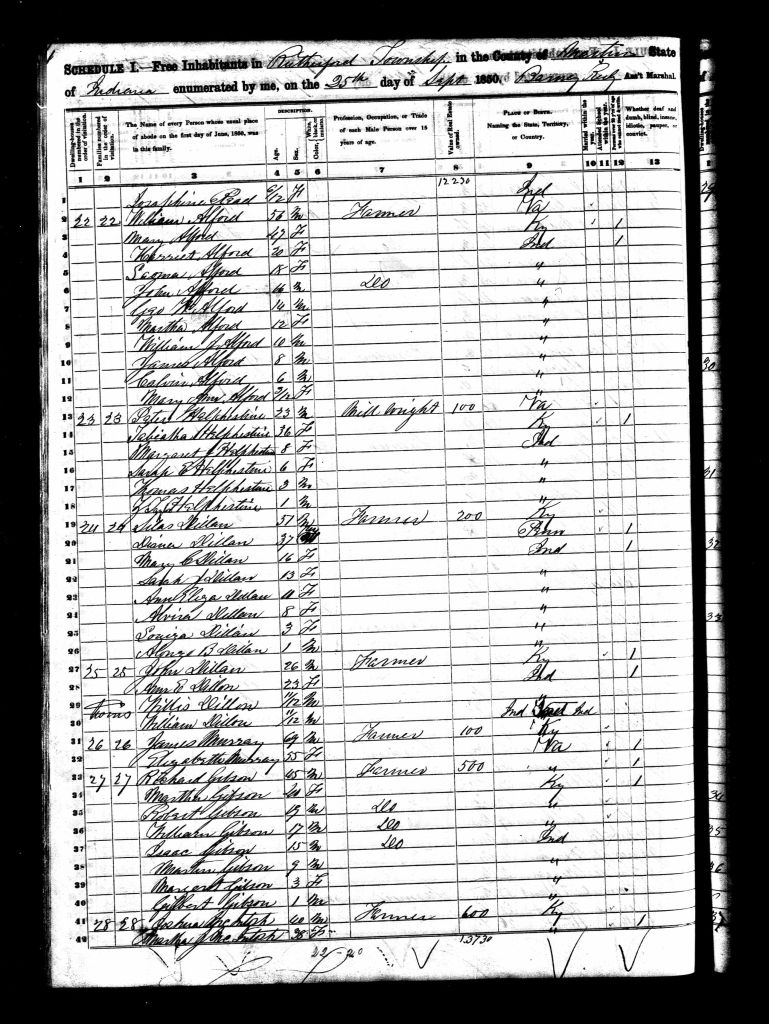 SCHEDULE I.—Free Inhabitants in Rutherford Township in the County of Martin State
of Indiana enumerated by me, on the 25th day of Sept 1850. Ass't Marshal.
Dwelling-houses numbered in the order of visitation.
Families numbered in the order of visitation.
The Name of every Person whose usual place of abode on the first day of June, 1850, was in this family.
DESCRIPTION.
Age.
Sex.
Color,
Profession, Occupation, or Trade of each Male Person over 15 years of age.
Value of Real Estate owned.
PLACE OF BIRTH. Naming the State, Territory, or Country.
Married within the year.
Whether deaf and dumb, blind, insane, idiotic, pauper, or convict.
1 2 3 4 5 6 7 8 9 10 11 12 13
12230
1 Josephine Read 6/12 F Ind
2 22 22 William Alford 56 M Farmer Va
3 Mary Alford 47 F Ky 1
4 Harriet Alford 20 F Ind 1
5 Alford 18 F "
6 John Alford 16 M Do "
7 Geo W Alford 14 M "
8 Martha Alford 12 F "
9 William J Alford 10 M "
10 James Alford 8 M "
11 Calvin Alford 6 M "
12 Mary Ann Alford 2/12 F "
13 23 23 Peter Helphestine 23 M Mill Wright 100 Va
14 Tabitha Helphestine 36 F Ky 1
15 Margaret Helphestine 8 F Ind
16 Sarah E Helphestine 6 F "
17 Thomas Helphestine 3 M "
18 Helphestine 1 M "
19 24 24 Silas Dillan 51 M Farmer 200 Ky
20 Dianer Dillan 37 Penn 1
21 Mary C Dillan 16 F Ind 1
22 Sarah J Dillan 13 F "
23 Ann Eliza Dillan 11 F "
24 Alvira Dillan 8 F "
25 Louiza Dillan 3 F "
26 Alonzo B Dillan 1 M "
27 25 25 John Dillan 26 M Farmer Ky 1
28 Ann E Dillon 23 F Ind 1
29 Willis Dillon 11/12 M "
30 Twins William Dillon 11/12 M Ind Ind
31 26 26 James Murray 69 M Farmer 100 Ky
32 Elizabeth Murray 55 F Va 1
33 27 27 Richard Gibson 45 M Farmer 500 " 1
34 Martha Gibson 40 F Ky 1
35 Robert Gibson 19 M Do "
36 William Gibson 17 M Do "
37 Isaac Gibson 15 M Do Ind
38 Martin Gibson 9 M "
39 Margaret Gibson 3 F "
40 Gilbert Gibson 1 M "
41 28 28 Joshua McIntosh 40 M Farmer 600 Ky
42 Martha J McIntosh 38 F " 1
22-20 13730